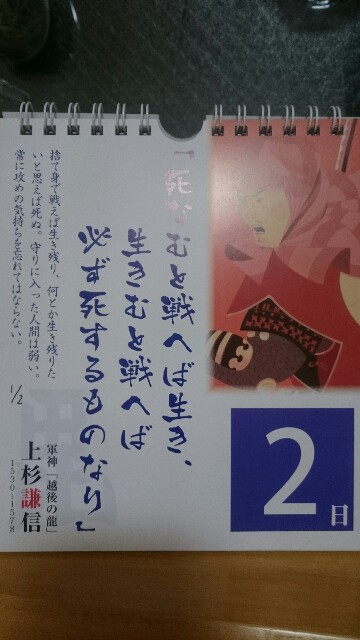 「死なむと戦へば生き、
生きむと戦へば
必ず死するものなり」
捨て身で戦えば生き残り、何とか生き残りた
いと思えば死ぬ。守りに入った人間は弱い。
常に攻めの気持ちを忘れてはならない。
1/2
軍神「越後の龍」
上杉謙信
1530〜1578
2日